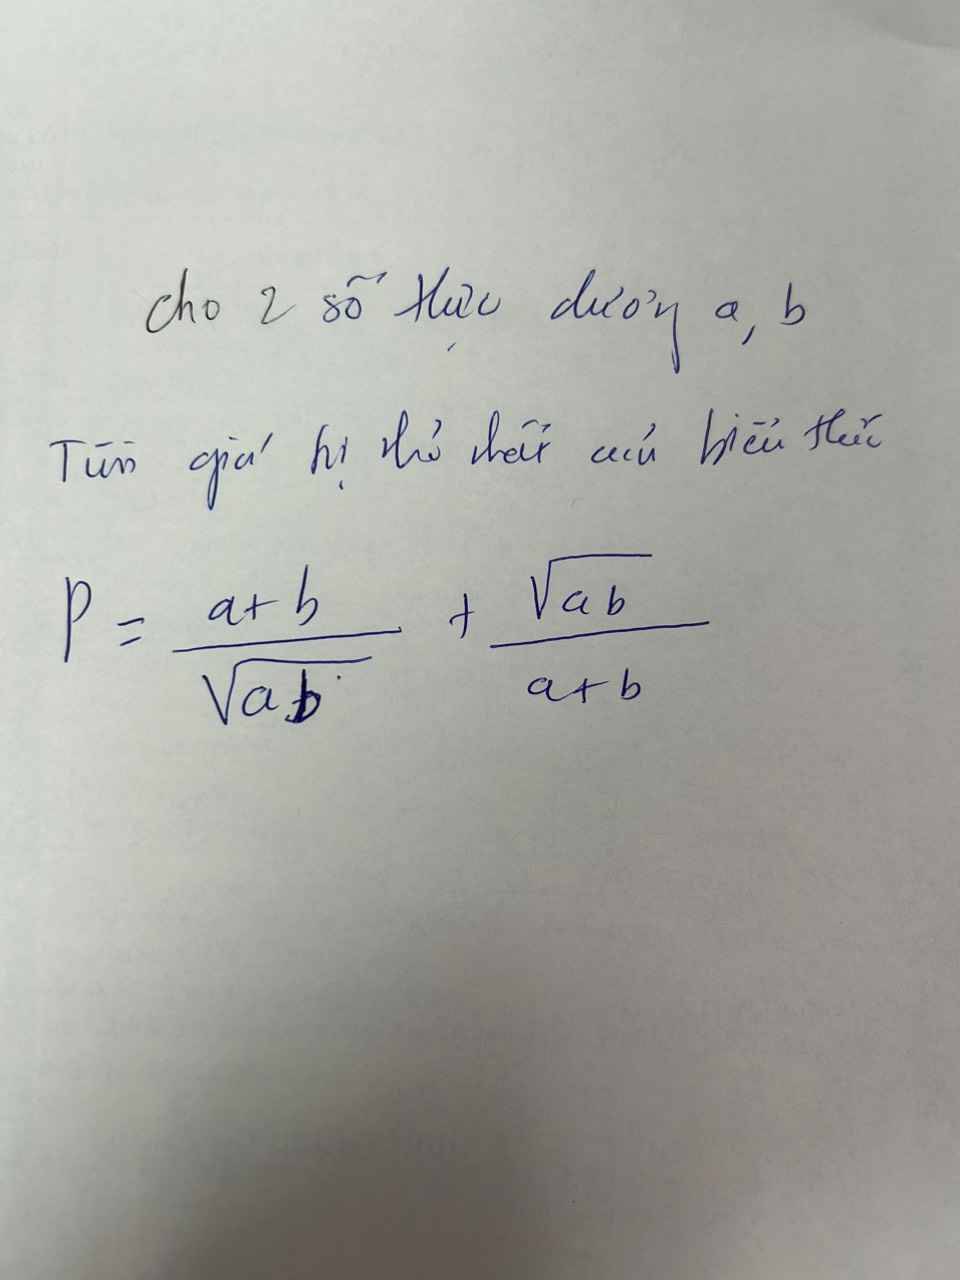 cho 2 số thực dương a, b
Tìm giá trị nhỏ nhất của biểu thức
P = \frac{a+b}{\sqrt{ab}} + \frac{\sqrt{ab}}{a+b}